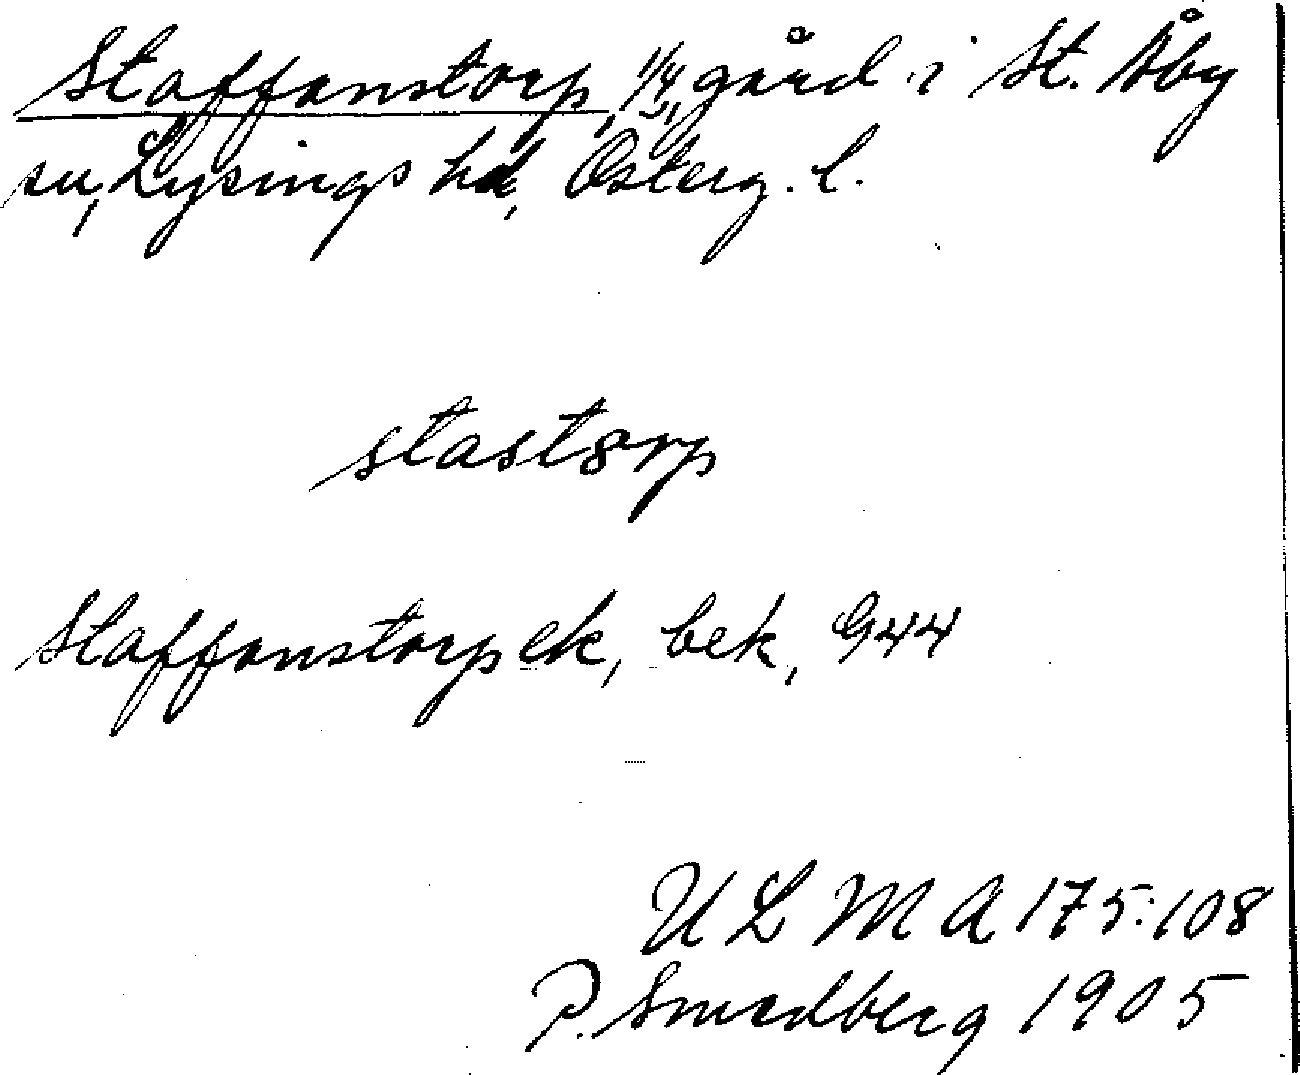 Staffanstorp, 1/4 gård i St. Åby
sn, Lysings hd, Österg. l.
stastorp
Staffanstorp ek, bek, 944
ULMA 175:108
P. Smedberg 1905